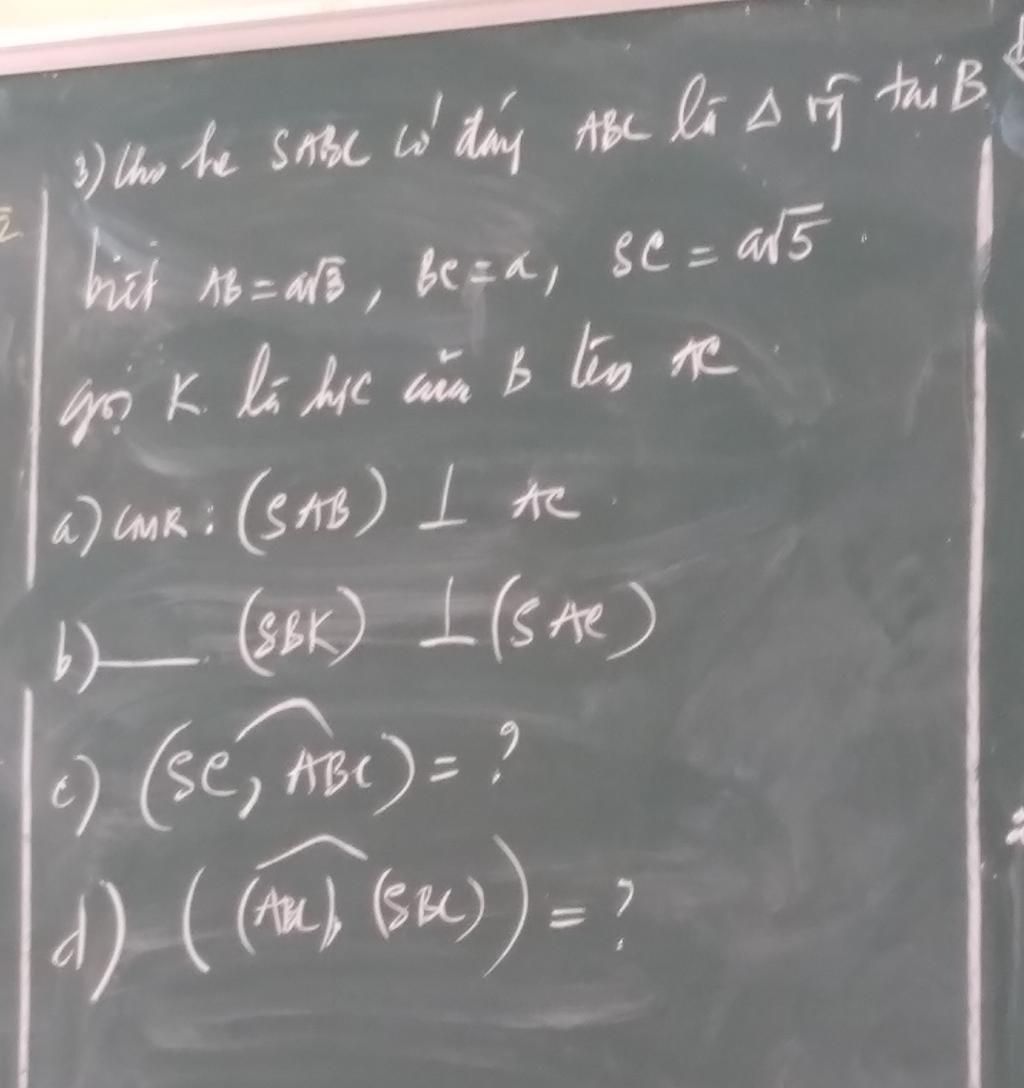 3) Cho hc SABC có đáy ABC là Δ vg tại B
biết AB = a√3, BC = a, SC = a√5.
gọi K là h/c của B lên AC
a) CMR: (SAB) ⊥ AC
b) — (SBK) ⊥ (SAC)
c) (SC, ABC) = ?
d) ((ABC), (SBC)) = ?